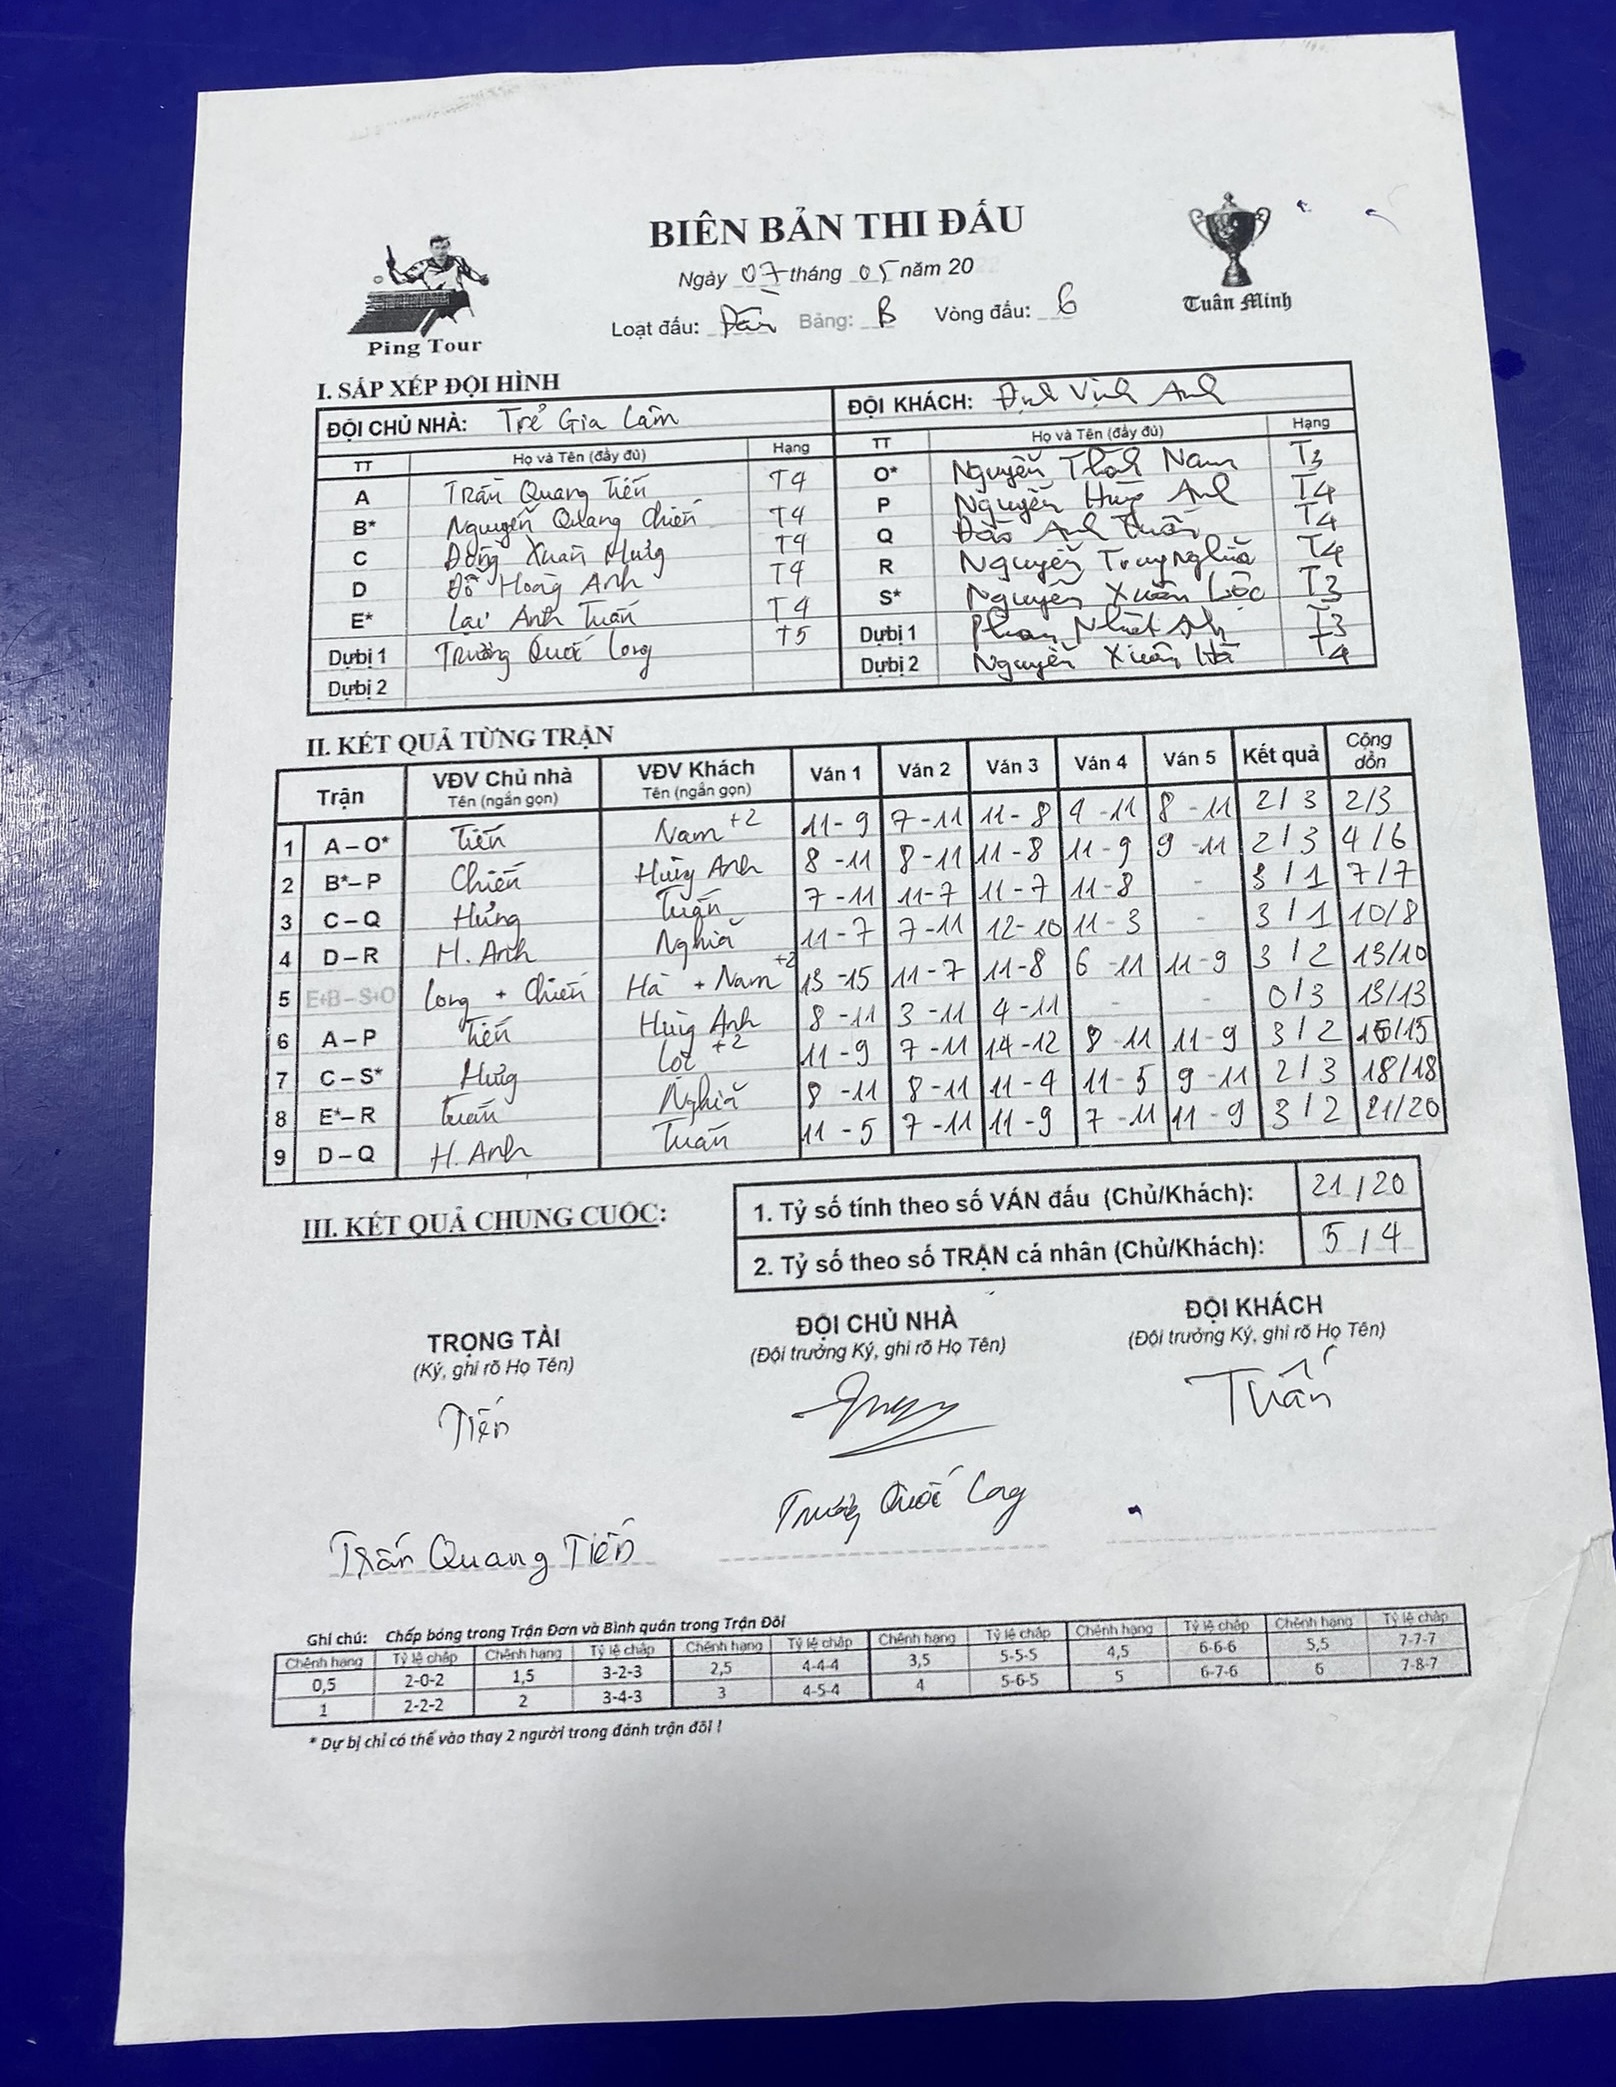 BIÊN BẢN THI ĐẤU
Ngày 07 tháng 05 năm 20
Loạt đấu: Bảng: B Vòng đấu: 6
Ping Tour
Tuân Minh
I. SẮP XẾP ĐỘI HÌNH
ĐỘI CHỦ NHÀ: Trẻ Gia Lâm ĐỘI KHÁCH: Định Vịnh Anh
TT Họ và Tên (đầy đủ) Hạng TT Họ và Tên (đầy đủ) Hạng
A Trần Quang Tiến T4 O* Nguyễn Thành Nam T3
B* Nguyễn Quang Chiến T4 P Nguyễn Hùng Anh T4
C Đồng Xuân Hưng T4 Q Đào Anh Tuấn T4
D Đỗ Hoàng Anh T4 R Nguyễn Trung Nghĩa T4
E* Lại Anh Tuấn T4 S* Nguyễn Xuân Lộc T3
Dựbị 1 Trương Quốc Long T5 Dựbị 1 Phan Nhật Anh T3
Dựbị 2 Dựbị 2 Nguyễn Xuân Hà T4
II. KẾT QUẢ TỪNG TRẬN
Trận VĐV Chủ nhà Tên (ngắn gọn) VĐV Khách Tên (ngắn gọn) Ván 1 Ván 2 Ván 3 Ván 4 Ván 5 Kết quả Cộng dồn
1 A – O* Tiến Nam +2 11 - 9 7 - 11 11 - 8 4 - 11 8 - 11 2 / 3 2/3
2 B* – P Chiến Hùng Anh 8 - 11 8 - 11 11 - 8 11 - 9 9 - 11 2 / 3 4 / 6
3 C – Q Hưng Tuấn 7 - 11 11 - 7 11 - 7 11 - 8 - 3 / 1 7 / 7
4 D – R H. Anh Nghĩa 11 - 7 7 - 11 12 - 10 11 - 3 - 3 / 1 10/8
5 E+B – S+O Long + Chiến Hà + Nam +2 13 - 15 11 - 7 11 - 8 6 - 11 11 - 9 3 / 2 13/10
6 A – P Tiến Hùng Anh 8 - 11 3 - 11 4 - 11 - - 0 / 3 13/13
7 C – S* Hưng Lộc +2 11 - 9 7 - 11 14 - 12 8 - 11 11 - 9 3 / 2 16/15
8 E* – R Tuấn Nghĩa 8 - 11 8 - 11 11 - 4 11 - 5 9 - 11 2 / 3 18/18
9 D – Q H. Anh Tuấn 11 - 5 7 - 11 11 - 9 7 - 11 11 - 9 3 / 2 21/20
III. KẾT QUẢ CHUNG CUỘC:
1. Tỷ số tính theo số VÁN đấu (Chủ/Khách): 21 / 20
2. Tỷ số theo số TRẬN cá nhân (Chủ/Khách): 5 / 4
TRỌNG TÀI ĐỘI CHỦ NHÀ ĐỘI KHÁCH
(Ký, ghi rõ Họ Tên) (Đội trưởng Ký, ghi rõ Họ Tên) (Đội trưởng Ký, ghi rõ Họ Tên)
Tiến Tuấn
Trần Quang Tiến Trương Quốc Long
Ghi chú: Chấp bóng trong Trận Đơn và Bình quân trong Trận Đôi
Chênh hạng Tỷ lệ chấp Chênh hạng Tỷ lệ chấp Chênh hạng Tỷ lệ chấp Chênh hạng Tỷ lệ chấp Chênh hạng Tỷ lệ chấp Chênh hạng Tỷ lệ chấp
0,5 2-0-2 1,5 3-2-3 2,5 4-4-4 3,5 5-5-5 4,5 6-6-6 5,5 7-7-7
1 2-2-2 2 3-4-3 3 4-5-4 4 5-6-5 5 6-7-6 6 7-8-7
* Dự bị chỉ có thể vào thay 2 người trong đánh trận đôi !